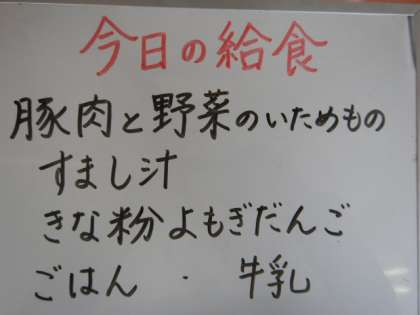 今日の給食
豚肉と野菜のいためもの
すまし汁
きな粉よもぎだんご
ごはん ・ 牛乳